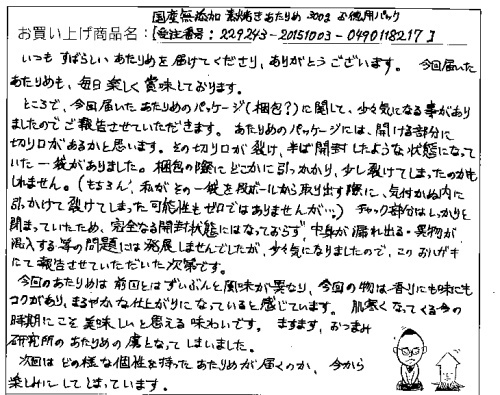 国産無添加 素焼きあたりめ 300g お徳用パック
お買い上げ商品名:[受注番号:229243-20151003-0490118217]
いつもすばらしいあたりめを届けてくださり、ありがとうございます。今回届いた
あたりめも、毎日楽しく賞味しております。
ところで、今回届いたあたりめのパッケージ(梱包?)に関して、少々気になる事があり
ましたのでご報告させていただきます。あたりめのパッケージには、開ける部分に
切り口があるかと思います。その切り口が裂け、半ば開封したような状態になって
いた一袋がありました。梱包の際にどこかに引っかかり、少し裂けてしまったのかも
しれません。(もちろん、私がその一袋を段ボールから取り出す際に、気付かぬ内に
引っかけて裂けてしまった可能性もゼロではありませんが…)チャック部分はしっかりと
閉まっていたため、完全なる開封状態にはなっておらず、中身が漏れ出る・異物が
混入する等の問題には発展しませんでしたが、少々気になりましたので、このおハガキ
にて報告させていただいた次第です。
今回のあたりめは前回とはずいぶんと風味が異なり、今回の物は香りにも味にも
コクがあり、まろやかな仕上がりになっていると感じています。肌寒くなってくる今の
時期にこそ美味しいと思える味わいです。ますます、おつまみ
研究所のあたりめの虜となってしまいました。
次回はどの様な個性を持ったあたりめが届くのか、今から
楽しみにしてしまっています。